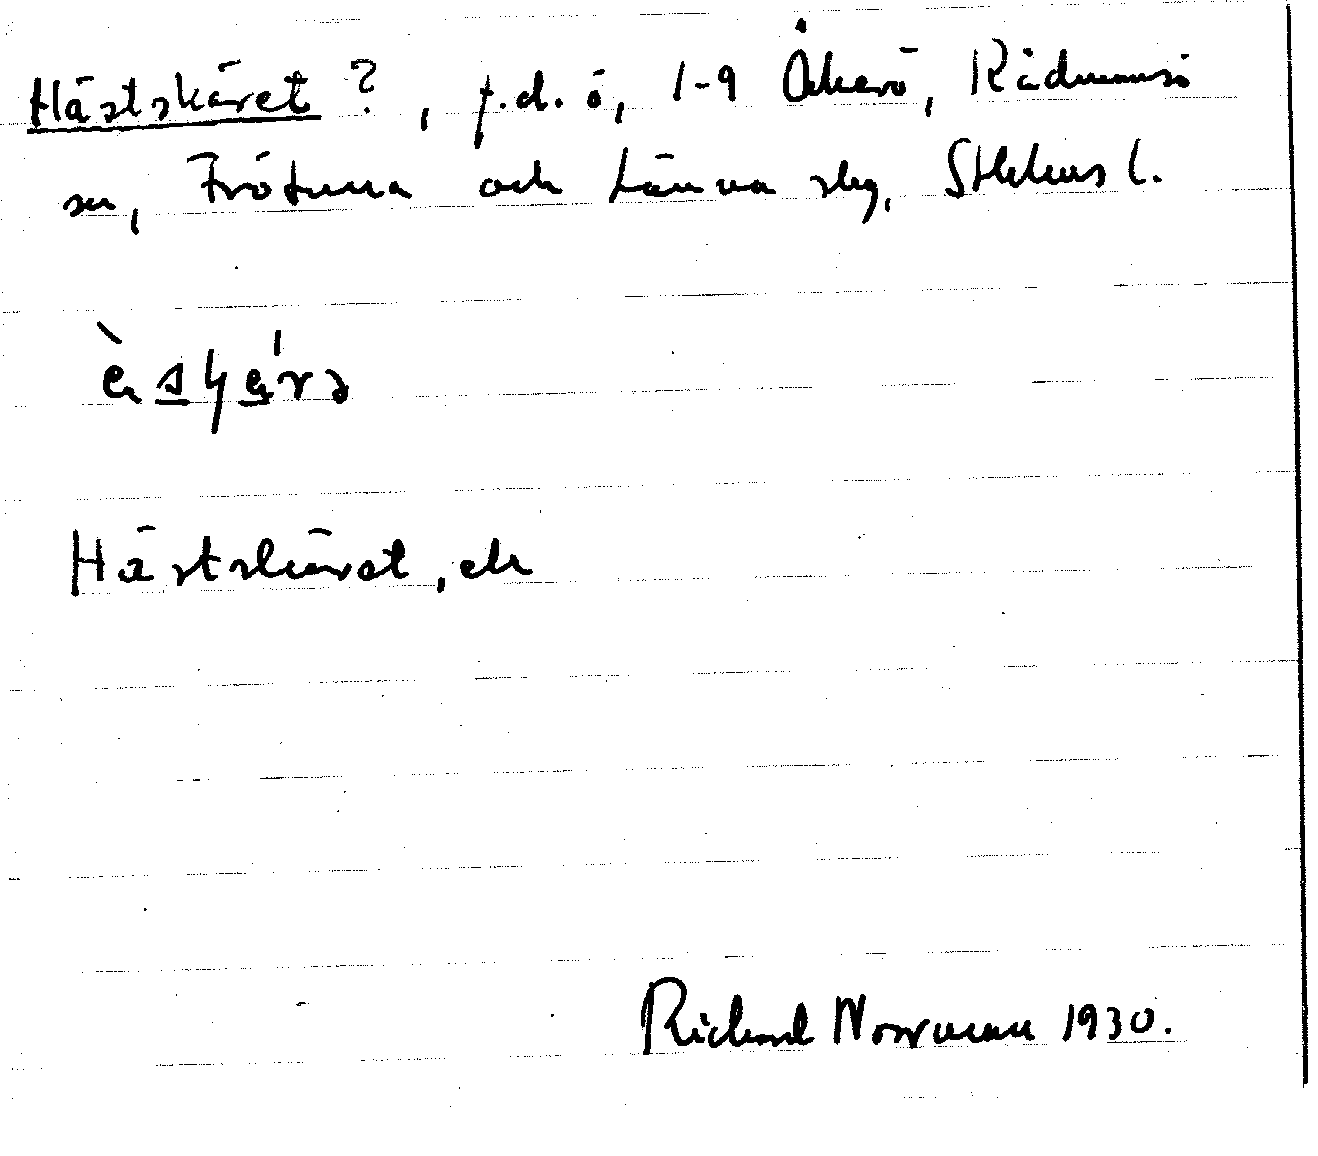 Hästskäret ?, f.d. ö, 1-9 Åkerö, Rådmansö
sn, Frötuna och Länna skg, Sthlms l.
Hästskäret, ek
Richard Norrman 1930.